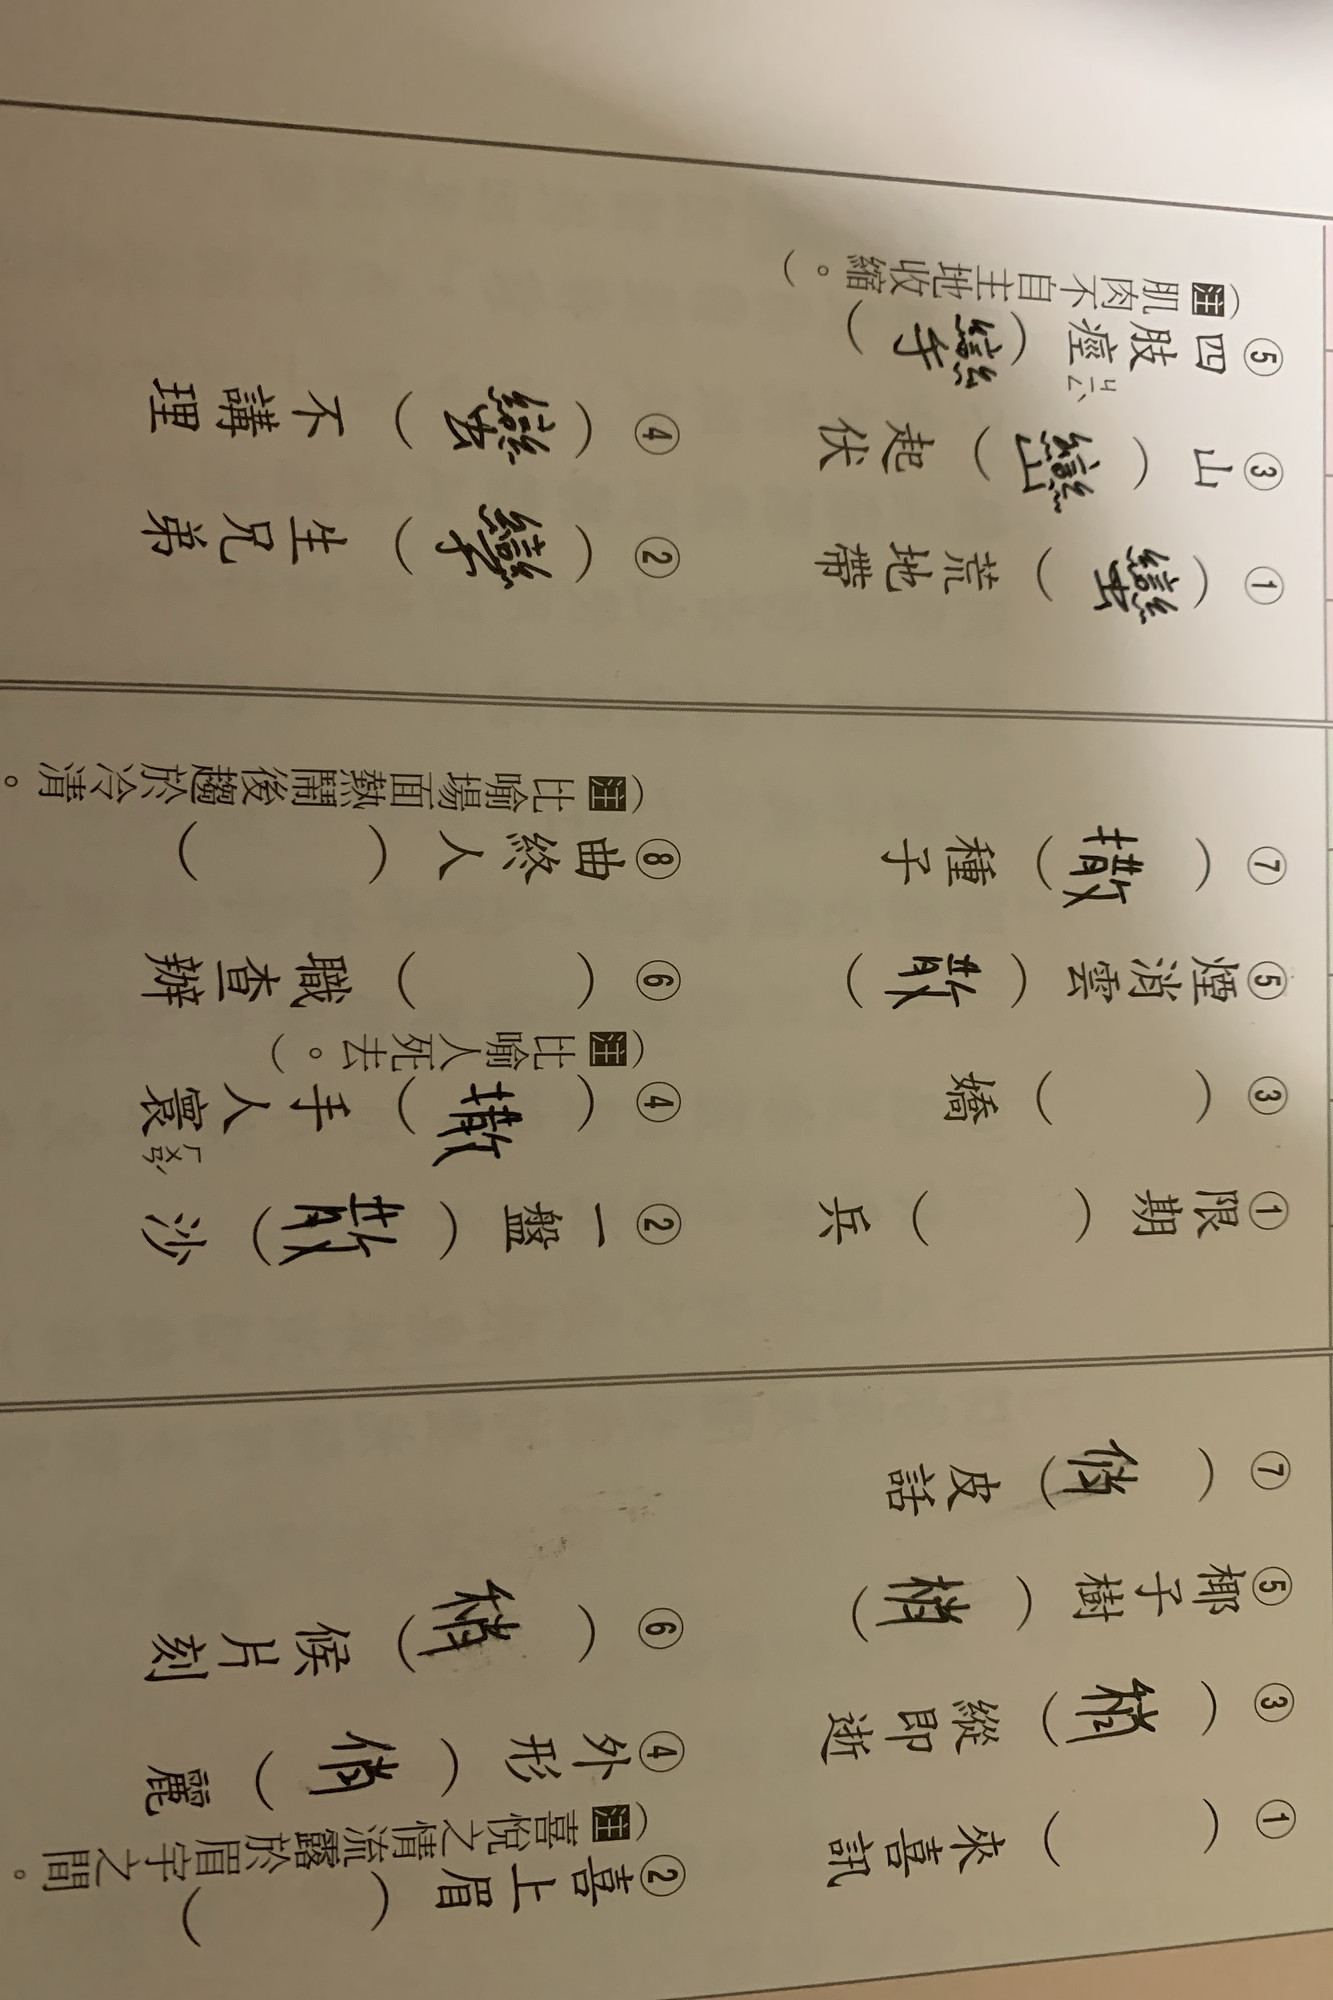 ①（　）來喜訊
②喜上眉（　）
（注喜悅之情流露於眉宇之間。
③（稍）縱即逝
④外形（俏）麗
⑤椰子樹（梢）
⑥（稍）候片刻
⑦（俏）皮話
①限期（　）兵
②一盤（散）沙
③（　）嬌
④（撒）手人寰ㄏㄨㄢˊ
（注比喻人死去。）
⑤煙消雲（散）
⑥（　）職查辦
⑦（撒）種子
⑧曲終人（　）
（注比喻場面熱鬧後趨於冷清。
①（蠻）荒地帶
②（孿）生兄弟
③山（巒）起伏
④（蠻）不講理
⑤四肢痙ㄐㄧㄥˋ（攣）
（注肌肉不自主地收縮。）